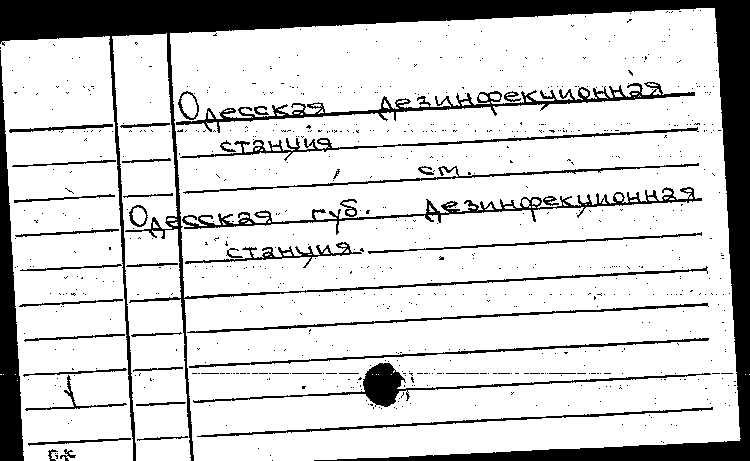 Одесская дезинфекционная
станция
см.
Одесская губ. дезинфекционная
станция.